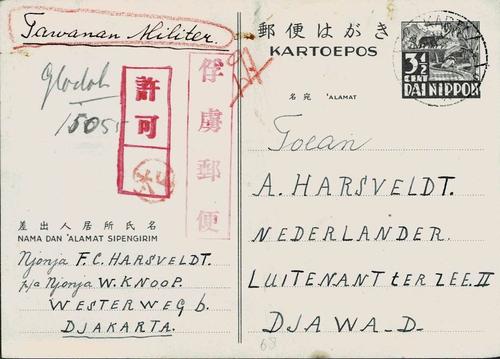 Tawanan Militer.
Glodok
15055
許可
俘虜郵便
差出人居所氏名
NAMA DAN 'ALAMAT SIPENGIRIM
Njonja F.C. HARSVELDT.
p/a Njonja W. KNOOP.
WESTERWEG 6.
DJAKARTA.
郵便はがき
KARTOEPOS
3½
CENT
DAI NIPPON
名宛 'ALAMAT
Toean
A. HARSVELDT.
NEDERLANDER.
LUITENANT ter ZEE. II
DJAWA-D.
68